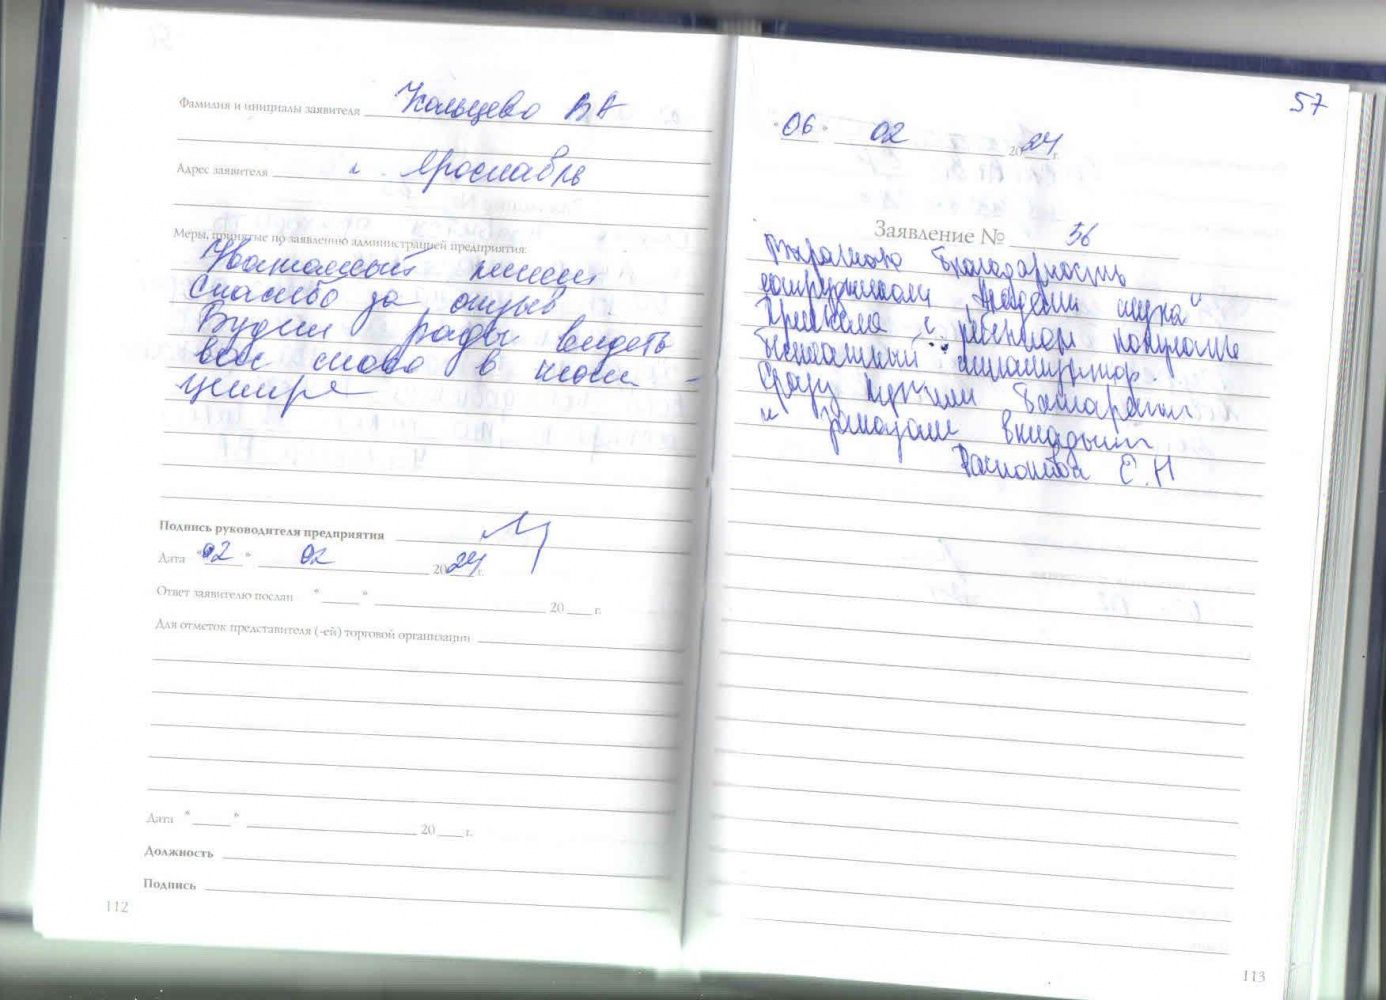 Фамилия и инициалы заявителя Кольцево В А
Адрес заявителя г. Ярославль
Меры, принятые по заявлению администрацией предприятия:
Уважаемый клиент
спасибо за отзыв.
Будем рады видеть
вас снова в нашем
центре
Подпись руководителя предприятия
Дата "02" 02 2024 г.
Ответ заявителю послан " " 20 г.
Для отметок представителя (-ей) торговой организации
Дата " " 20 г.
Должность
Подпись
112
57
"06" 02 2024 г.
Заявление № 56
Выражаю благодарность
сотрудникам "Академии слуха"
Приехала с ребенком получать
бесплатный
Сразу купили батарейки
и заказали вкладыши
Е.Н
113